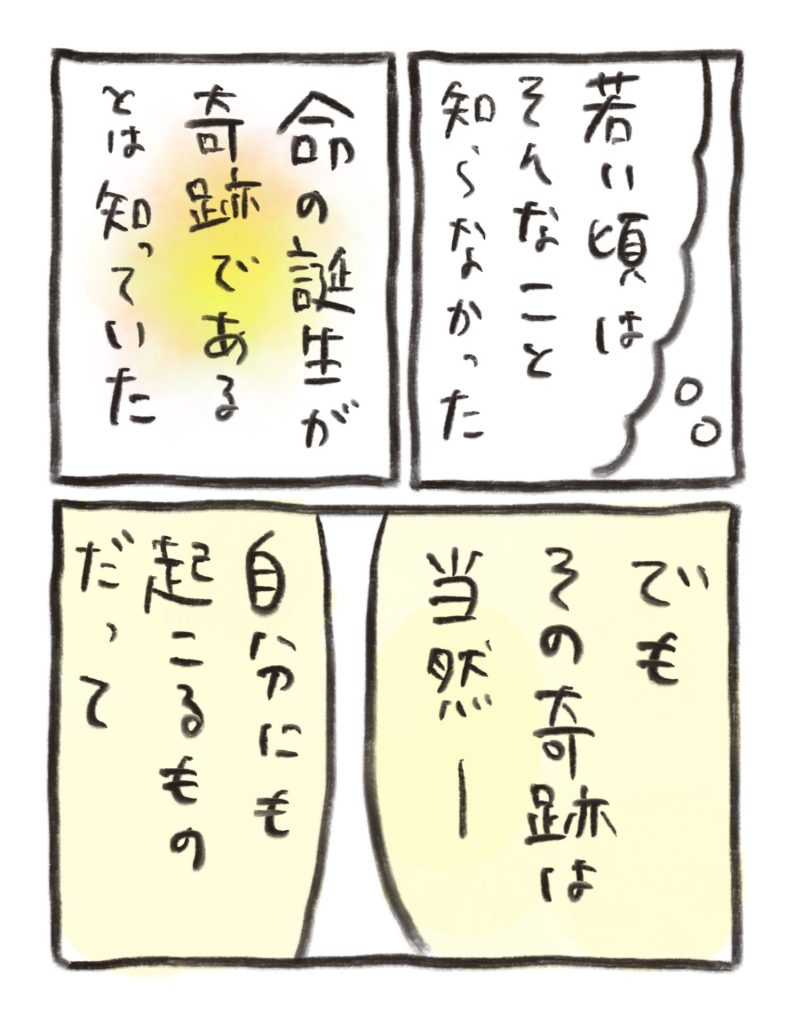 若い頃は
そんなこと
知らなかった
命の誕生が
奇跡である
とは知っていた
でも
その奇跡は
当然ー
自分にも
起こるもの
だって